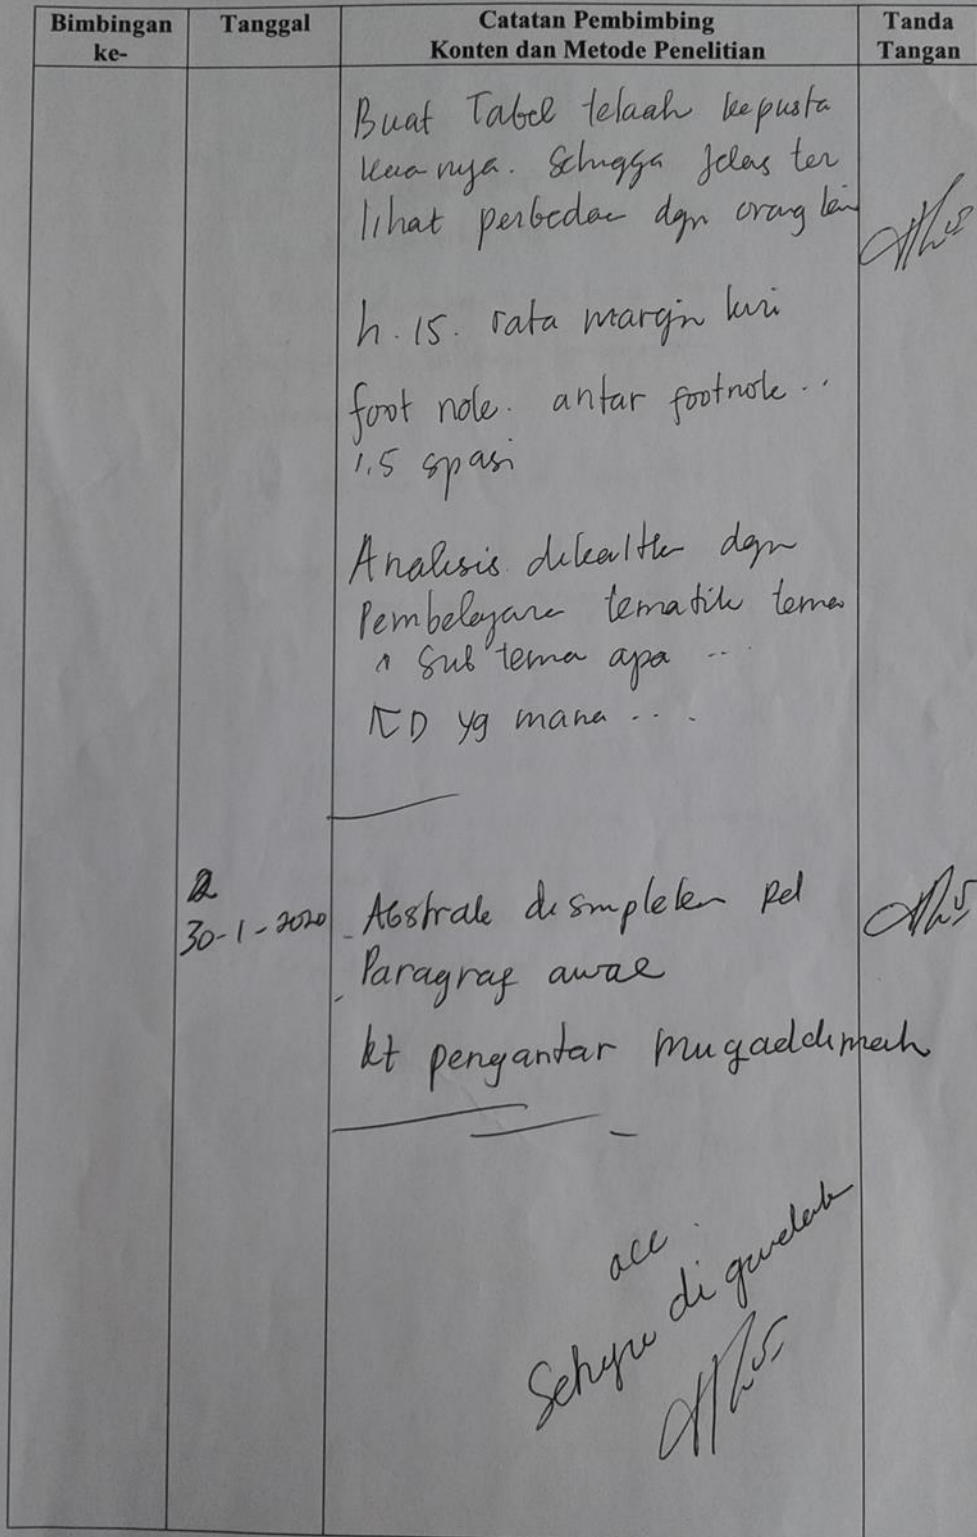 Bimbingan ke-
Tanggal
Catatan Pembimbing
Konten dan Metode Penelitian
Tanda Tangan
Buat Tabel telaah kepusta
kaanya. Sehigga jelas ter
lihat perbedaan dgn orang lain
h. 15. rata margin kiri
foot note. antar footnote..
1,5 spasi
Analisis dikaitkan dgn
Pembelajaran tematik tema
sub tema apa ...
KD yg mana ...
2
30-1-2020
- Abstrak
Paragraf awal
kt pengantar muqaddimah
acc
di